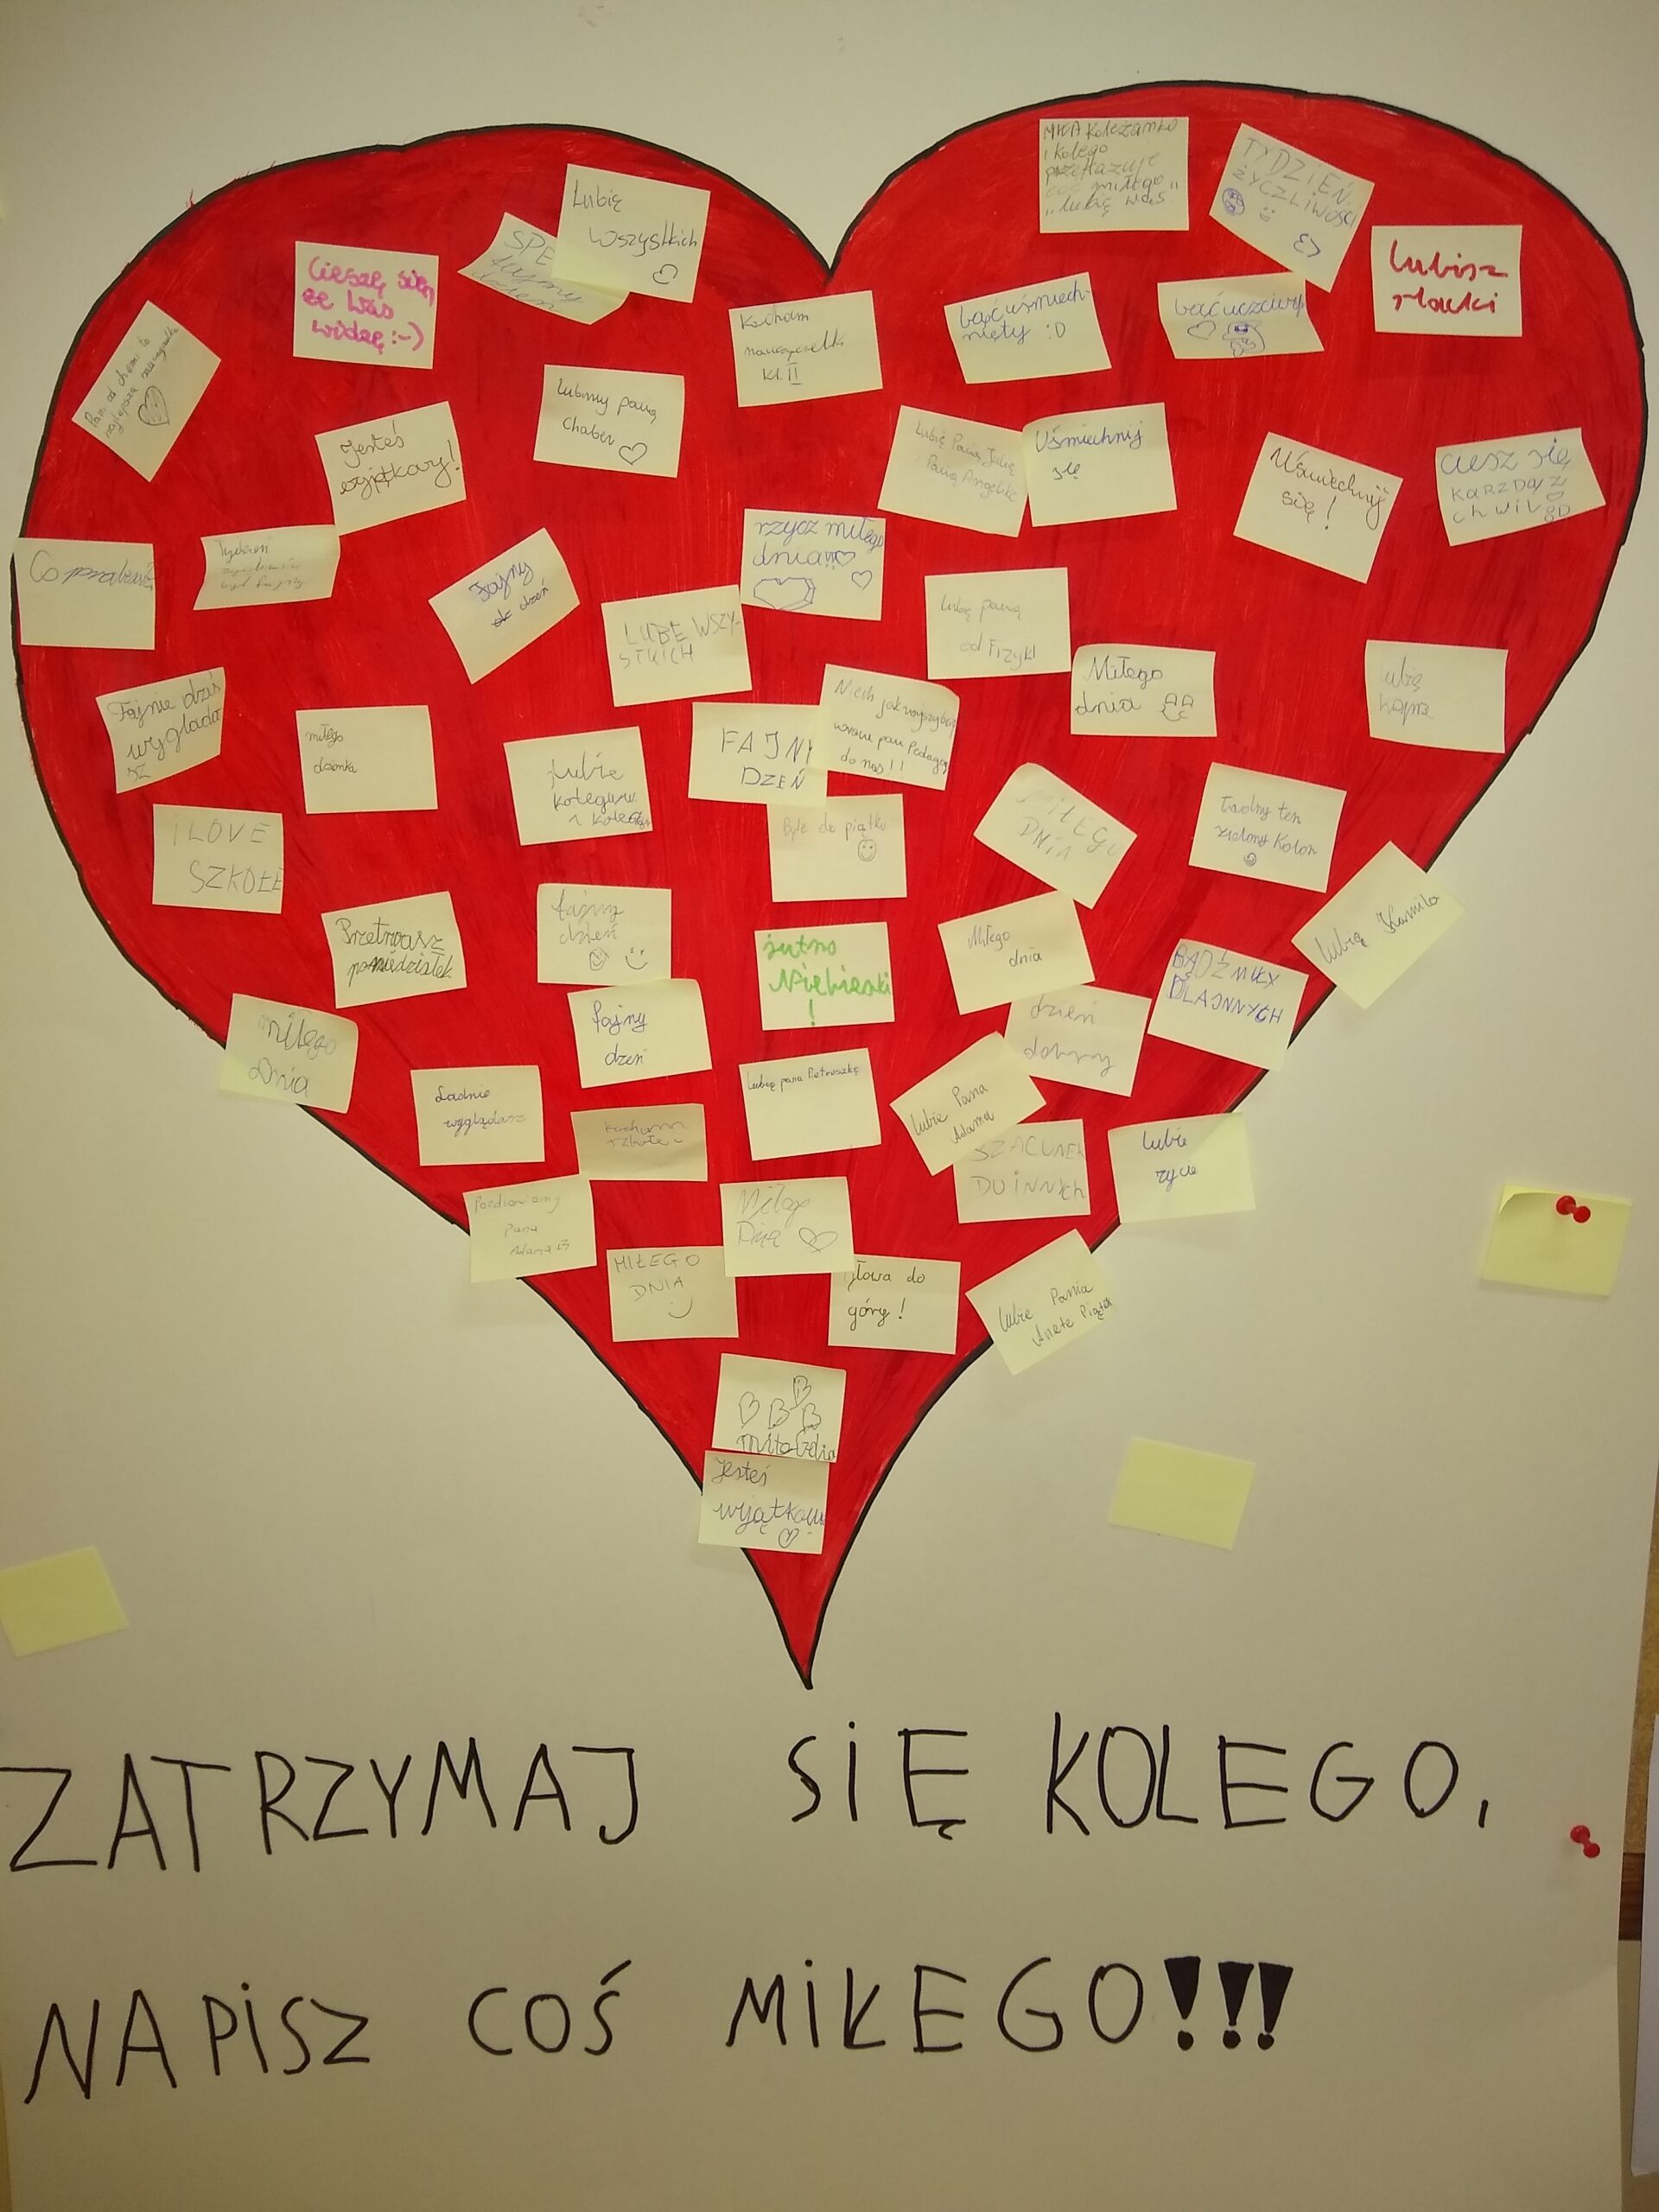 MIŁA Koleżanko
i kolego
przekazuję
coś miłego
"lubię was"
TYDZIEŃ
ŻYCZLIWOŚCI
Lubię
wszystkich
SPE
fajny
dzień
Lubisz
Cieszę się,
że Was
widzę :-)
Pani od chemi to
najlepsza nauczycielka
Kocham
kl. II
być uśmiech-
nięty :D
być uczciwym
Lubimy panią
chaber
Jesteś
wyjątkowy!
Lubię Panią
Panią Angelikę
Uśmiechnij
się
Uśmiechnij
się!
ciesz się
KARZDĄ
chwilą
Co
Tydzień
był fajny
Fajny
dzień
rzycz miłego
dnia!!
LUBE WSZY-
STKICH
lubię panią
od Fizyki
Miłego
dnia
ubię
Fajnie dziś
wyglada
sz
miłego
dzionka
Lubię
kolegów
i koleż
FAJNY
DZEŃ
Niech jak najszybciej
wróci pan Pedagog
do nas!!
Byle do piątku
MIŁEGO
DNIA
Ładny ten
zielony kolor
I LOVE
SZKOŁE
Przetrwasz
poniedziałek
fajny
dzień
jutro
Niebieski
!
Miłego
dnia
BĄDŹ MIŁY
DLA INNYCH
lubię Kamila
miłego
Dnia
fajny
dzeń
dzień
dobry
Ładnie
wyglądasz
Kocham
szkołe
Lubię pana Pietruszkę
lubie Pana
Adama
SZACUNEK
DO INNYCH
lubie
życie
Pozdrawiamy
Pana
Adama
Miłego
Dnia
MIŁEGO
DNIA
głowa do
góry!
lubie Pania
Anete Piątek
miłoGdnia
Jesteś
wyjątkowy
ZATRZYMAJ SIĘ KOLEGO,
NAPISZ COŚ MIŁEGO!!!